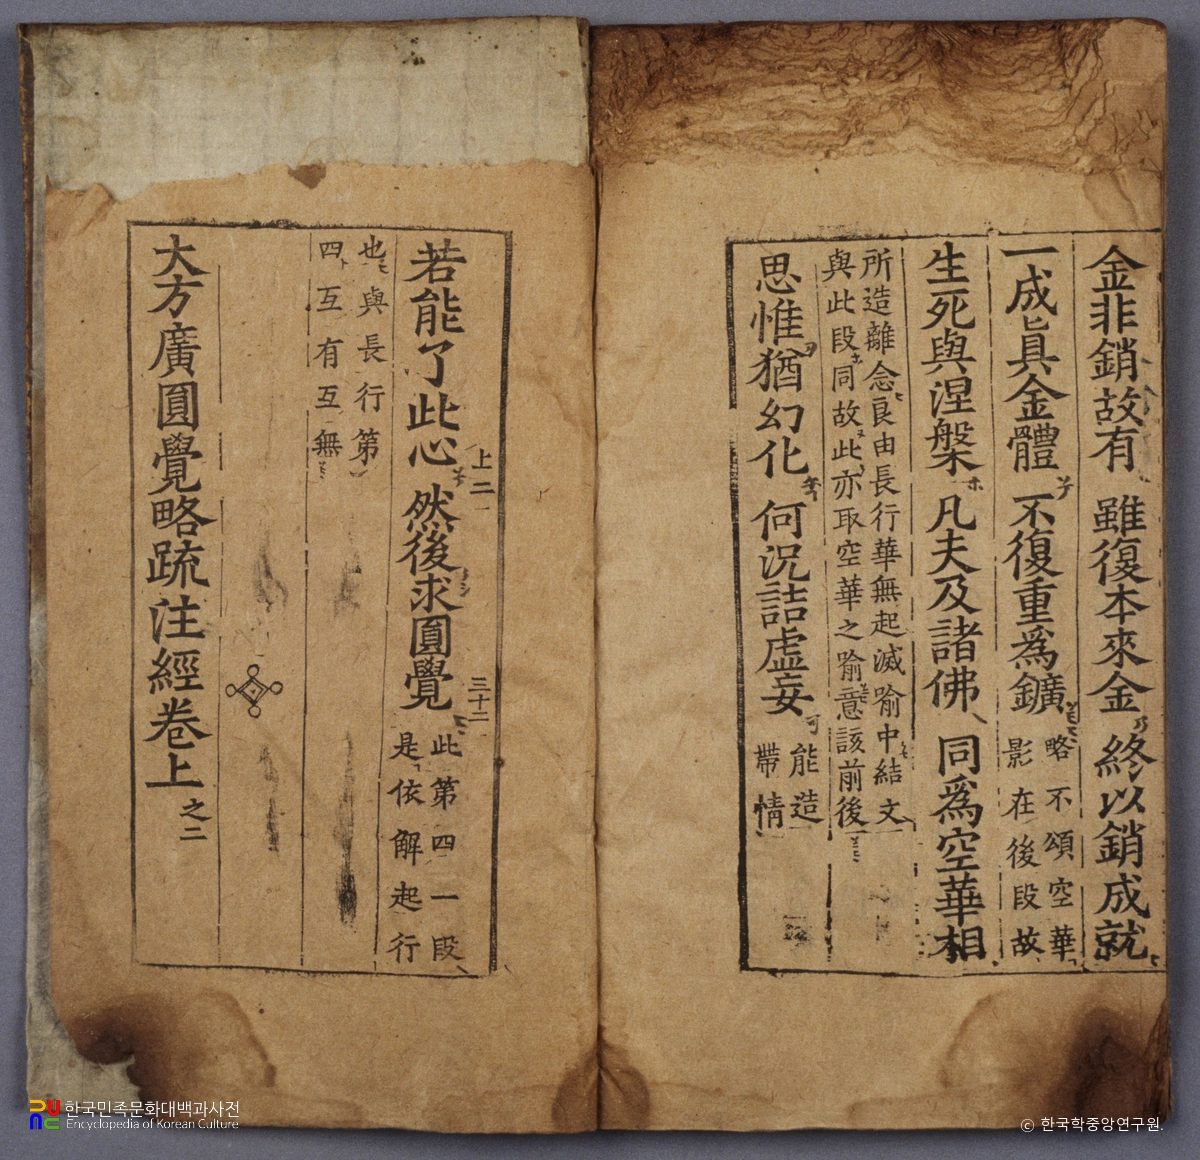 金非銷故有 雖復本來金 終以銷成就
一成眞金體 不復重爲鑛
略不頌空華
影在後段故
生死與涅槃 凡夫及諸佛 同爲空華相
所造離念良由長行華無起滅喻中結文
與此段同故此亦取空華之喻意該前後
思惟猶幻化 何況詰虛妄
能造
帶情
上二
三十二
若能了此心 然後求圓覺
此第四一段
是依解起行
也與長行第
四互有互無
大方廣圓覺略疏注經卷上之二
한국민족문화대백과사전
Encyclopedia of Korean Culture
© 한국학중앙연구원.